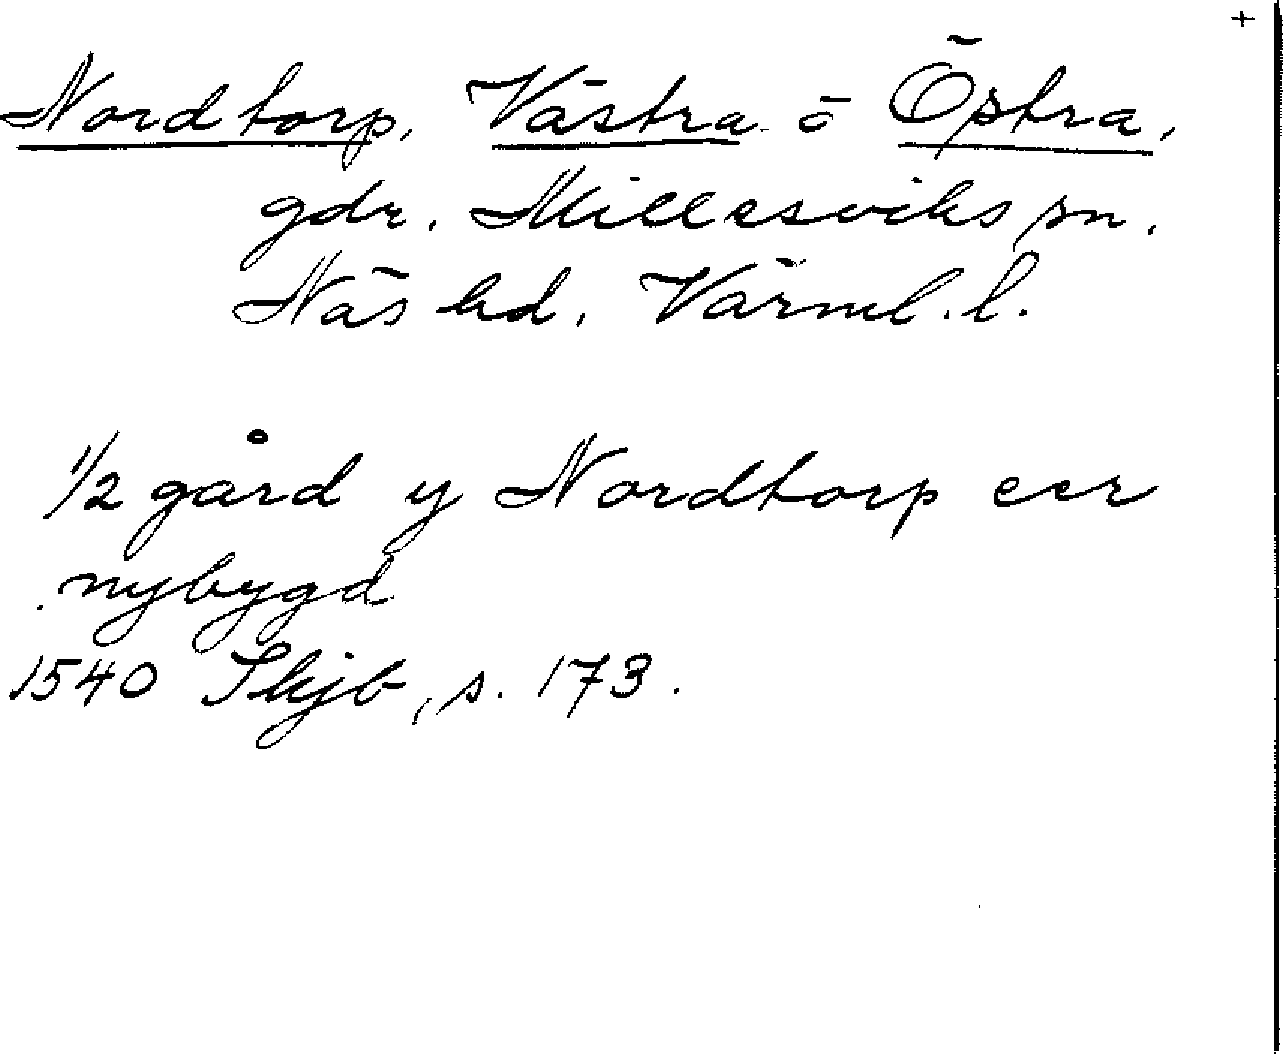 +
Nordtorp, Västra o Östra,
gdr. Millesviks sn.
Näs hd, Värml. l.
1/2 gård y Nordtorp eer
nybygd
1540 Skjb, s. 173.